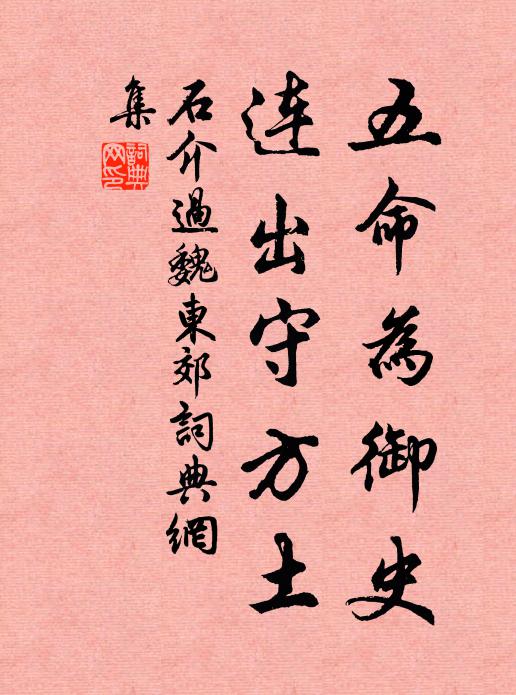 五命為御史
連出守方土
石介過魏東郊詞典網
集
詞典
网印